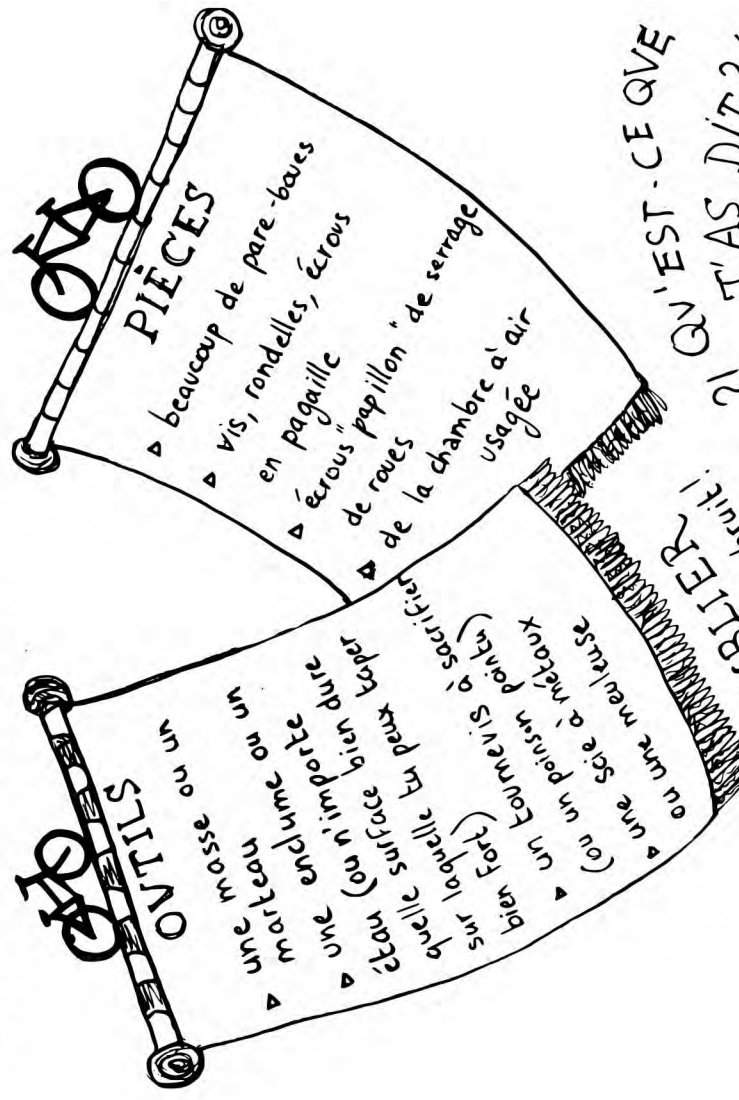 OVTILS
▹ une masse ou un
marteau
▹ une enclume ou un
étau (ou n'importe
quelle surface bien dure
sur laquelle tu peux taper
bien fort)
▹ un tournevis à sacrifier
(ou un poinson pointu)
▹ une scie à métaux
ou une meuleuse
PIÈCES
▹ beaucoup de pare-boues
▹ vis, rondelles, écrous
en pagaille
▹ écrous "papillon" de serrage
de roues
▹ de la chambre à air
usagée
QU'EST-CE QVE
T'AS DIT ?
bruit!